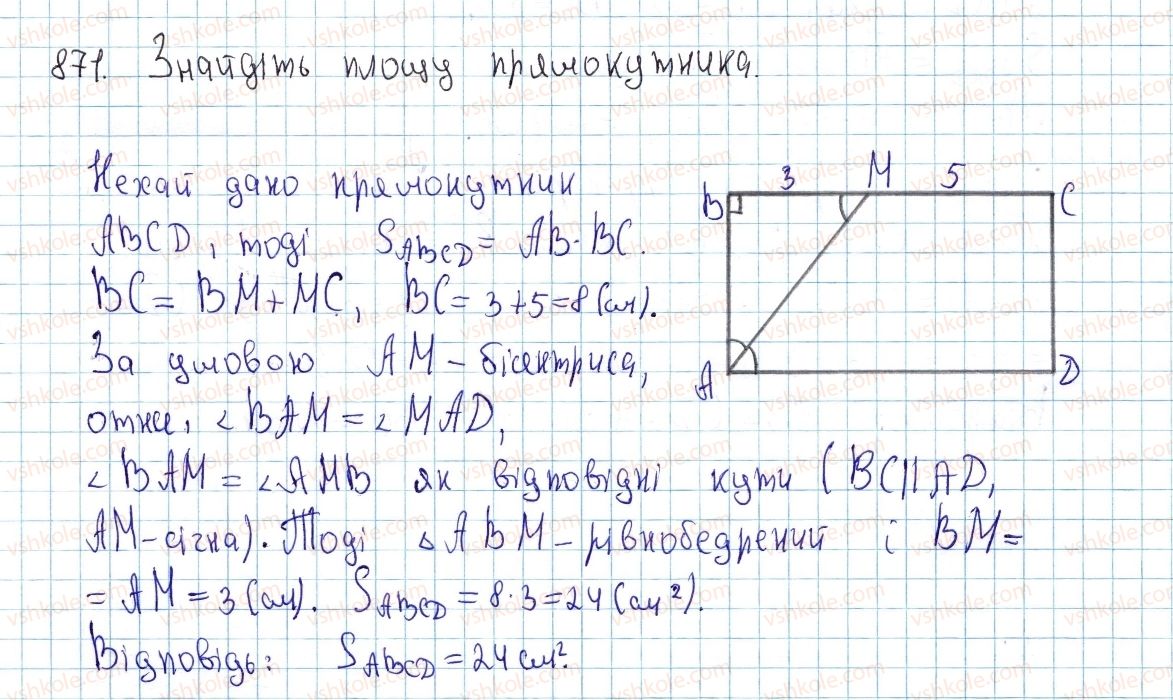 871. Знайдіть площу прямокутника.
Нехай дано прямокутник
ABCD, тоді S_ABCD = AB·BC.
BC = BM+MC, BC = 3+5=8 (см).
За умовою AM – бісектриса,
отже, ∠BAM = ∠MAD,
∠BAM = ∠AMB як відповідні кути (BC||AD,
AM – січна). Тоді △ABM – рівнобедрений і BM =
= AM = 3 (см). S_ABCD = 8·3=24 (см²).
Відповідь: S_ABCD = 24 см².
B 3 M 5 C
A D